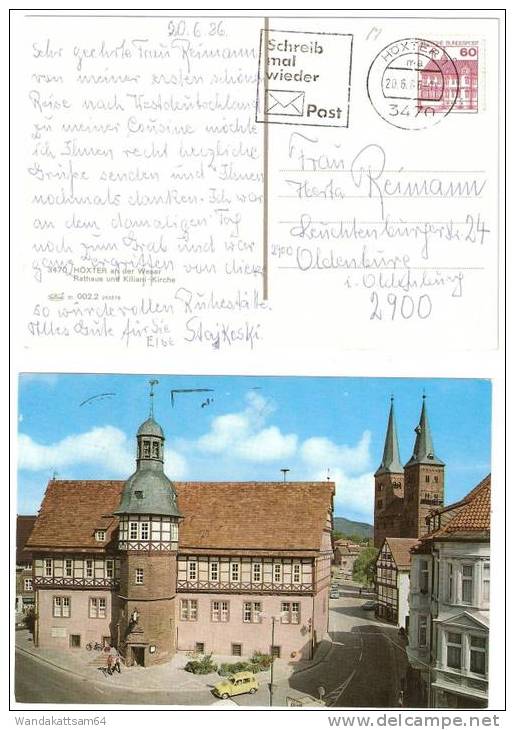 20.6.86
Sehr geehrte Frau Reimann,
von meiner ersten schönen
Reise nach Westdeutschland
zu meiner Cousine möchte
ich Ihnen recht herzliche
Grüße senden und Ihnen
nochmals danken. Ich war
an dem damaligen Tag
noch zum Grab und war
ganz ergriffen von dieser
so würdevollen Ruhestätte.
Alles Gute für Sie
Else Stajkoski
3470 HÖXTER an der Weser
Rathaus und Kiliani-Kirche
002.2
Schreib
mal
wieder
Post
HÖXTER
ma
20.6.86
3470
DEUTSCHE BUNDESPOST
60
Frau
Herta Reimann
Leuchtenburgerstr. 24
2900 Oldenburg
i. Oldenburg
2900
Wandakattsam64